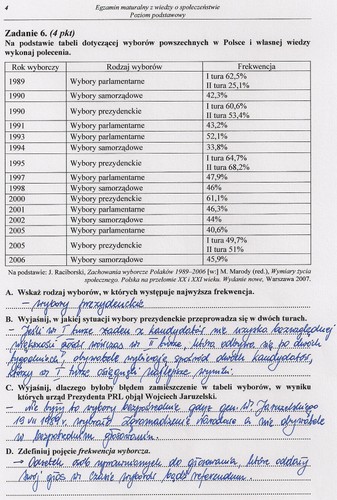 4
Egzamin maturalny z wiedzy o społeczeństwie
Poziom podstawowy
Zadanie 6. (4 pkt)
Na podstawie tabeli dotyczącej wyborów powszechnych w Polsce i własnej wiedzy
wykonaj polecenia.
Rok wyborczy Rodzaj wyborów Frekwencja
1989 Wybory parlamentarne I tura 62,5%
II tura 25,1%
1990 Wybory samorządowe 42,3%
1990 Wybory prezydenckie I tura 60,6%
II tura 53,4%
1991 Wybory parlamentarne 43,2%
1993 Wybory parlamentarne 52,1%
1994 Wybory samorządowe 33,8%
1995 Wybory prezydenckie I tura 64,7%
II tura 68,2%
1997 Wybory parlamentarne 47,9%
1998 Wybory samorządowe 46%
2000 Wybory prezydenckie 61,1%
2001 Wybory parlamentarne 46,3%
2002 Wybory samorządowe 44%
2005 Wybory parlamentarne 40,6%
2005 Wybory prezydenckie I tura 49,7%
II tura 51%
2006 Wybory samorządowe 45,9%
Na podstawie: J. Raciborski, Zachowania wyborcze Polaków 1989–2006 [w:] M. Marody (red.), Wymiary życia
społecznego. Polska na przełomie XX i XXI wieku. Wydanie nowe, Warszawa 2007.
A. Wskaż rodzaj wyborów, w których występuje najwyższa frekwencja.
– wybory prezydenckie
B. Wyjaśnij, w jakiej sytuacji wybory prezydenckie przeprowadza się w dwóch turach.
– Jeśli w I turze żaden z kandydatów nie uzyska bezwzględnej
większości głosów wówczas w II turze, która odbywa się po dwóch
tygodniach obywatele wybierają spośród dwóch kandydatów,
którzy w I turze osiągnęli najlepsze wyniki.
C. Wyjaśnij, dlaczego byłoby błędem zamieszczenie w tabeli wyborów, w wyniku
których urząd Prezydenta PRL objął Wojciech Jaruzelski.
– Nie były to wybory bezpośrednie gdyż gen. W. Jaruzelskiego
19 VII 1989 r. wybrało Zgromadzenie Narodowe a nie obywatele
w bezpośrednim głosowaniu.
D. Zdefiniuj pojęcie frekwencja wyborcza.
osób uprawnionych do głosowania, które oddały
swój głos w czasie wyborów bądź referendum.